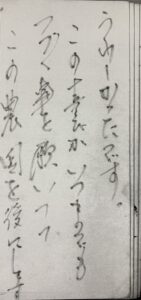 うれしかったです。
この喜びがいつまでも
つづく事を願いつつ
この農園を後にしま